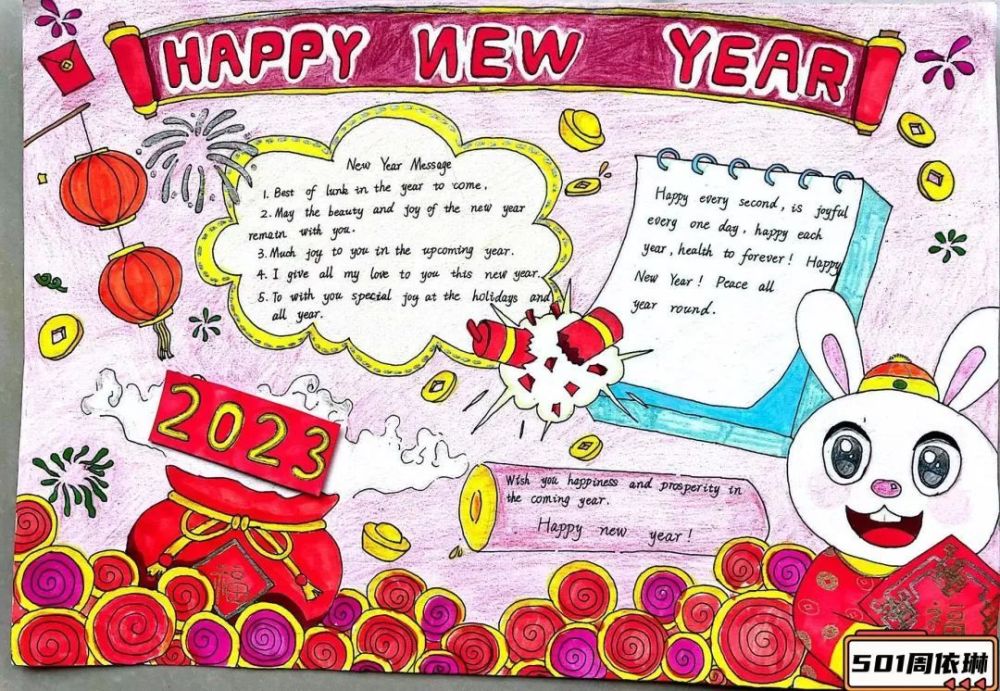 HAPPY NEW YEAR
New Year Message
1. Best of lunk in the year to come.
2. May the beauty and joy of the new year
remain with you.
3. Much joy to you in the upcoming year.
4. I give all my love to you this new year.
5. To with you special joy at the holidays and
all year.
Happy every second, is joyful
every one day, happy each
year, health to forever! Happy
New Year! Peace all
year round.
2023
Wish you happiness and prosperity in
the coming year.
Happy new year!
福
501周依琳